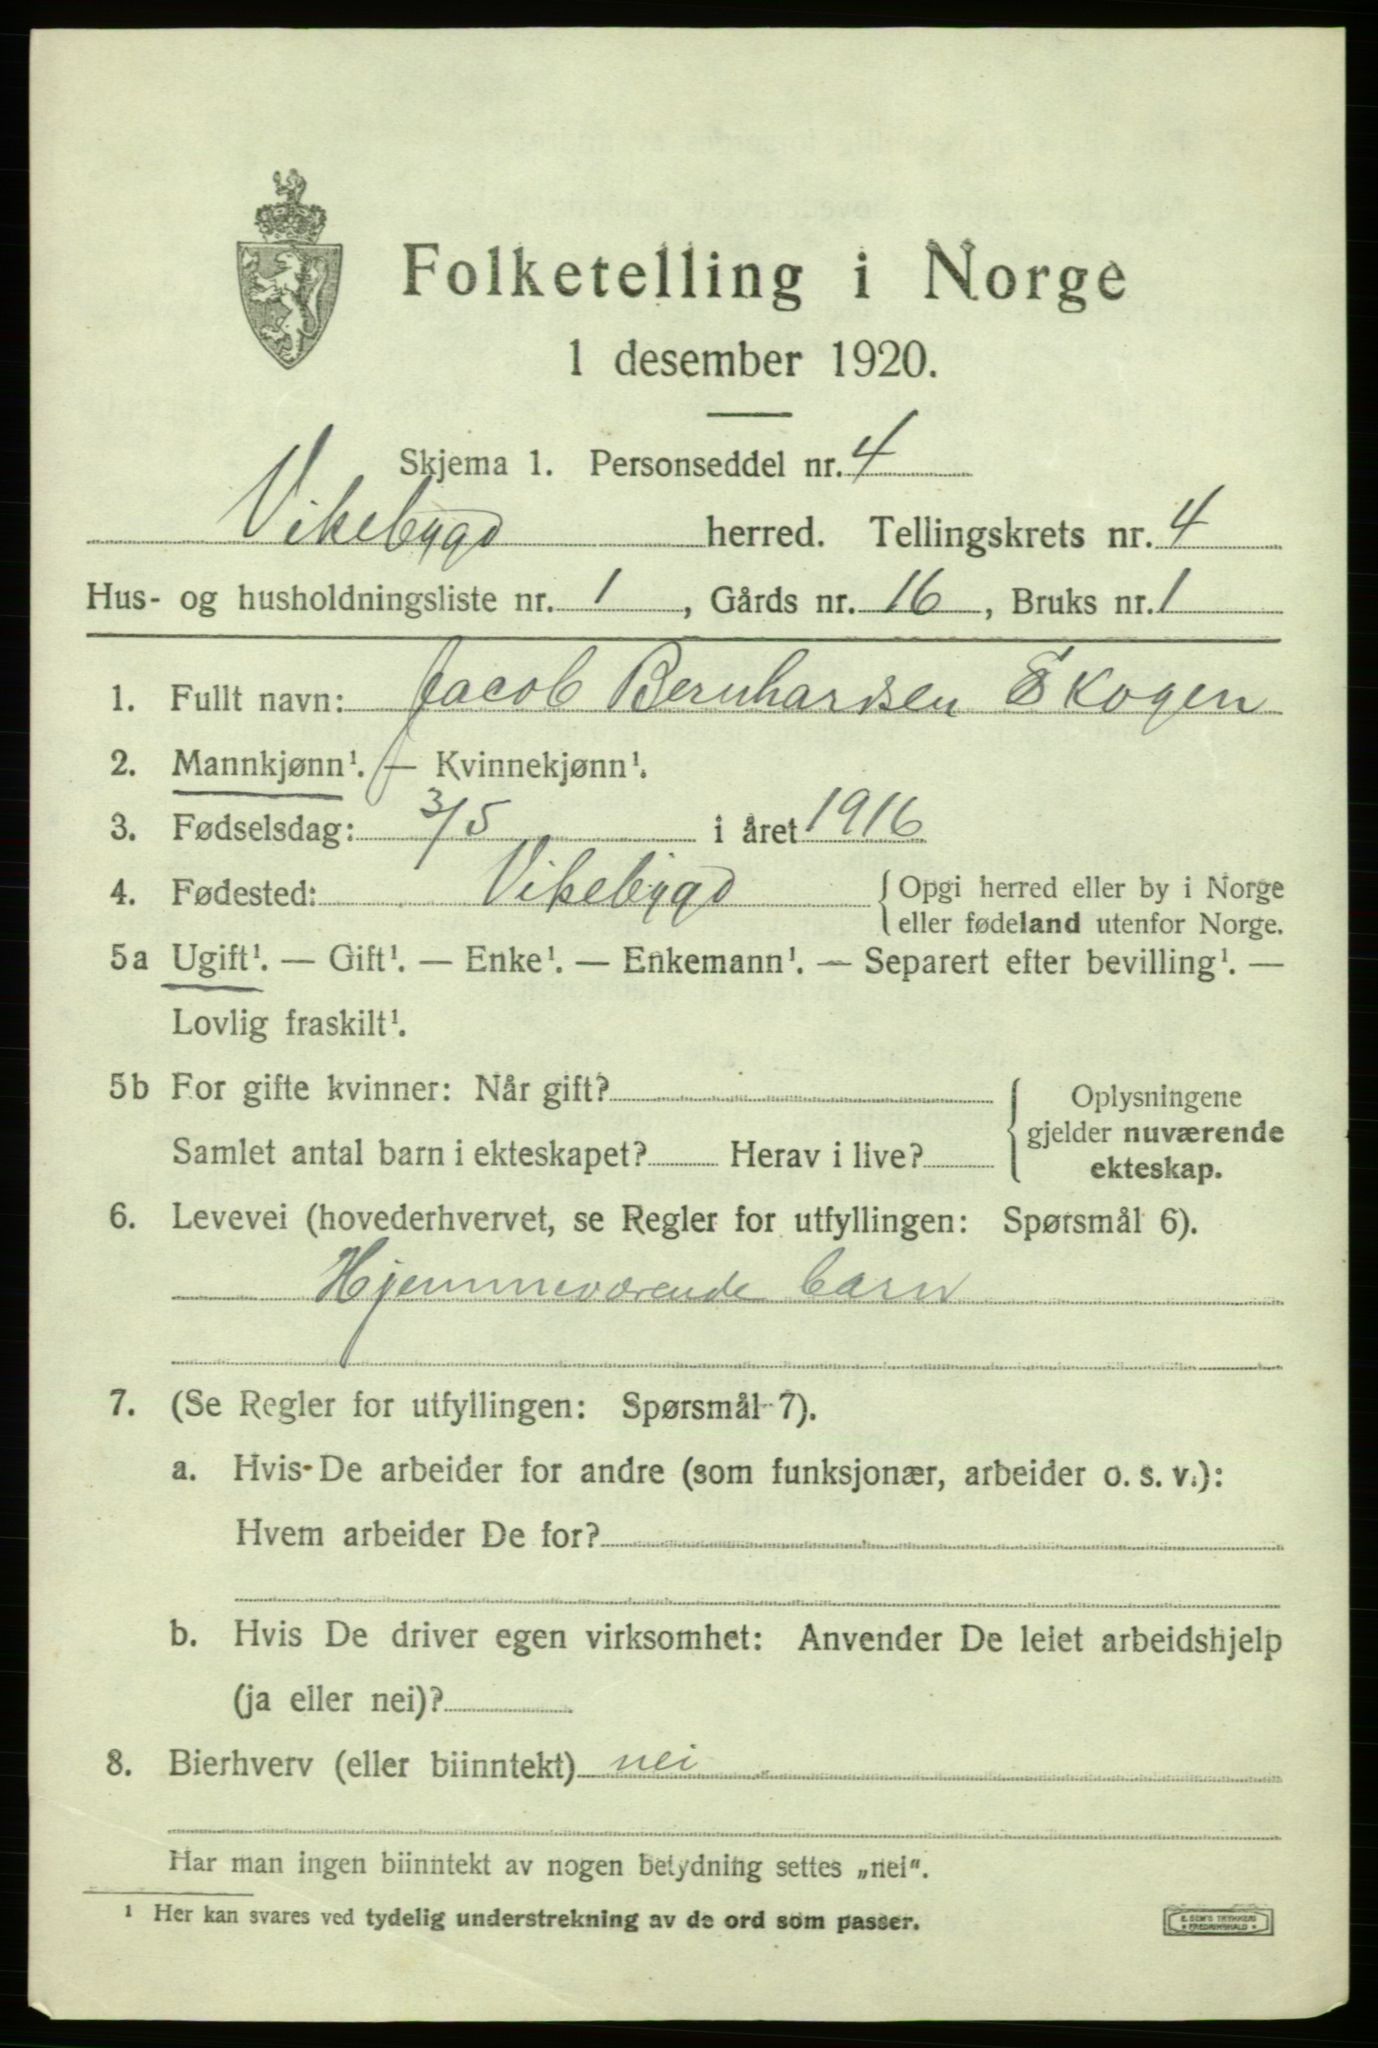 Folketelling i Norge
1 desember 1920.
Skjema 1. Personseddel nr. 4
Vikebygd herred. Tellingskrets nr. 4
Hus- og husholdningsliste nr. 1, Gårds nr. 16, Bruks nr. 1
1. Fullt navn: Jacob Bernhardsen Skogen
2. Mannkjønn¹. — Kvinnekjønn¹.
3. Fødselsdag: 3/5 i året 1916
4. Fødested: Vikebygd { Opgi herred eller by i Norge
eller fødeland utenfor Norge.
5a Ugift¹. — Gift¹. — Enke¹. — Enkemann¹. — Separert efter bevilling¹. —
Lovlig fraskilt¹.
5b For gifte kvinner: Når gift? { Oplysningene
gjelder nuværende
Samlet antal barn i ekteskapet? Herav i live? ekteskap.
6. Levevei (hovederhvervet, se Regler for utfyllingen: Spørsmål 6).
Hjemmeværende barn
7. (Se Regler for utfyllingen: Spørsmål 7).
a. Hvis De arbeider for andre (som funksjonær, arbeider o. s. v.):
Hvem arbeider De for?
b. Hvis De driver egen virksomhet: Anvender De leiet arbeidshjelp
(ja eller nei)?
8. Bierhverv (eller biinntekt) nei
Har man ingen biinntekt av nogen betydning settes „nei".
¹ Her kan svares ved tydelig understrekning av de ord som passer.
E. SEM'S TRYKKERI
FREDRIKSHALD